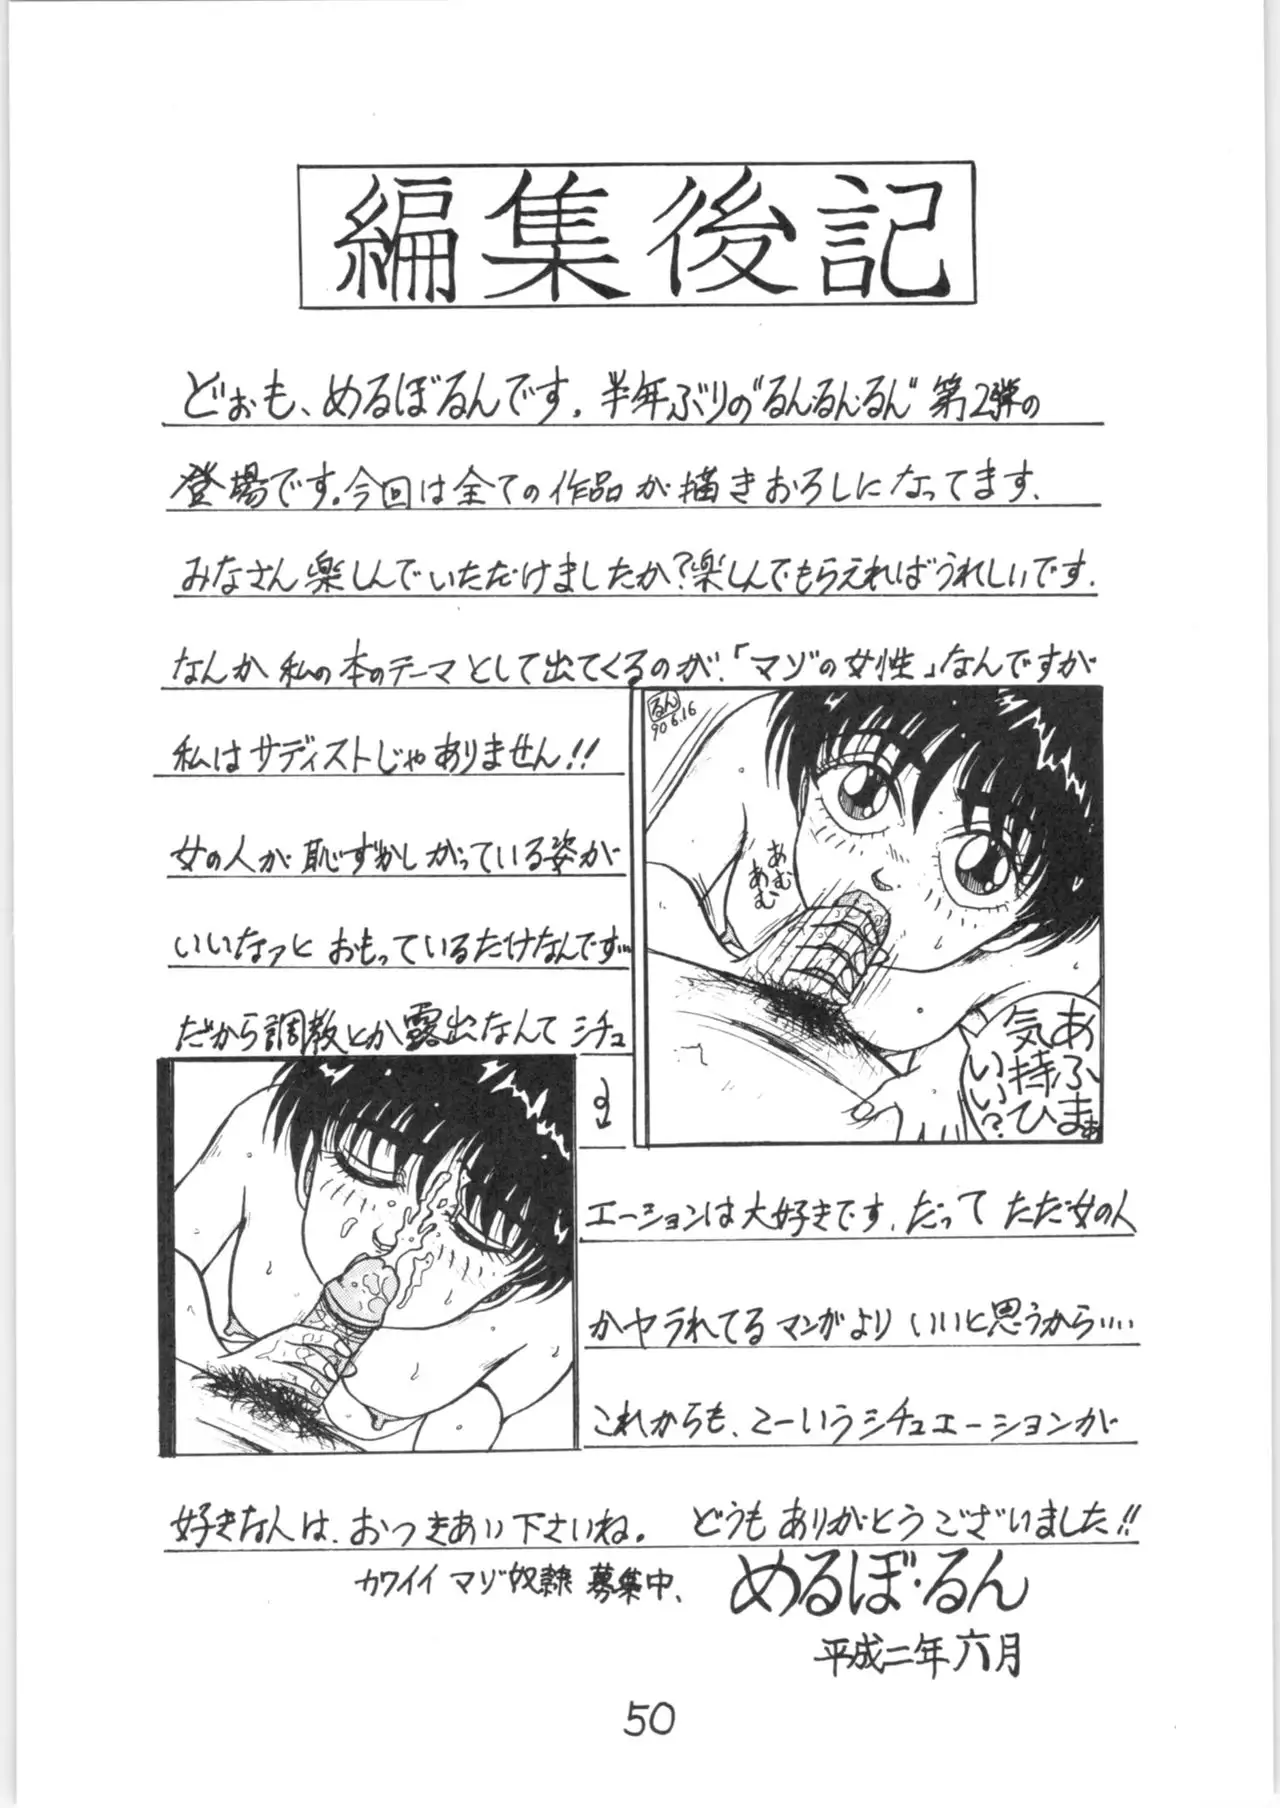 編集後記
どぉも、めるぼるんです。半年ぶりの"るん・るん・るん"第2弾の
登場です。今回は全ての作品が描きおろしになってます、
みなさん楽しんでいただけましたか?楽しんでもらえればうれしいです、
なんか私の本のテーマとして出てくるのが、「マゾの女性」なんですが
私はサディストじゃありません!!
女の人が恥ずかしがっている姿が
いいなァと おもっているだけなんです…
だから調教とか露出なんて シチュ
エーションは大好きです、だって ただ女の人
がヤラれてるマンガより いいと思うから……
これからも、こーいうシチュエーションが
好きな人は、おつきあい下さいね。 どうもありがとうございました!!
カワイイ マゾ奴隷 募集中、
めるぼ・るん
平成二年六月
るん
90.6.16
あむ
あむ
あふまぁ
気持ひ
いい?
50